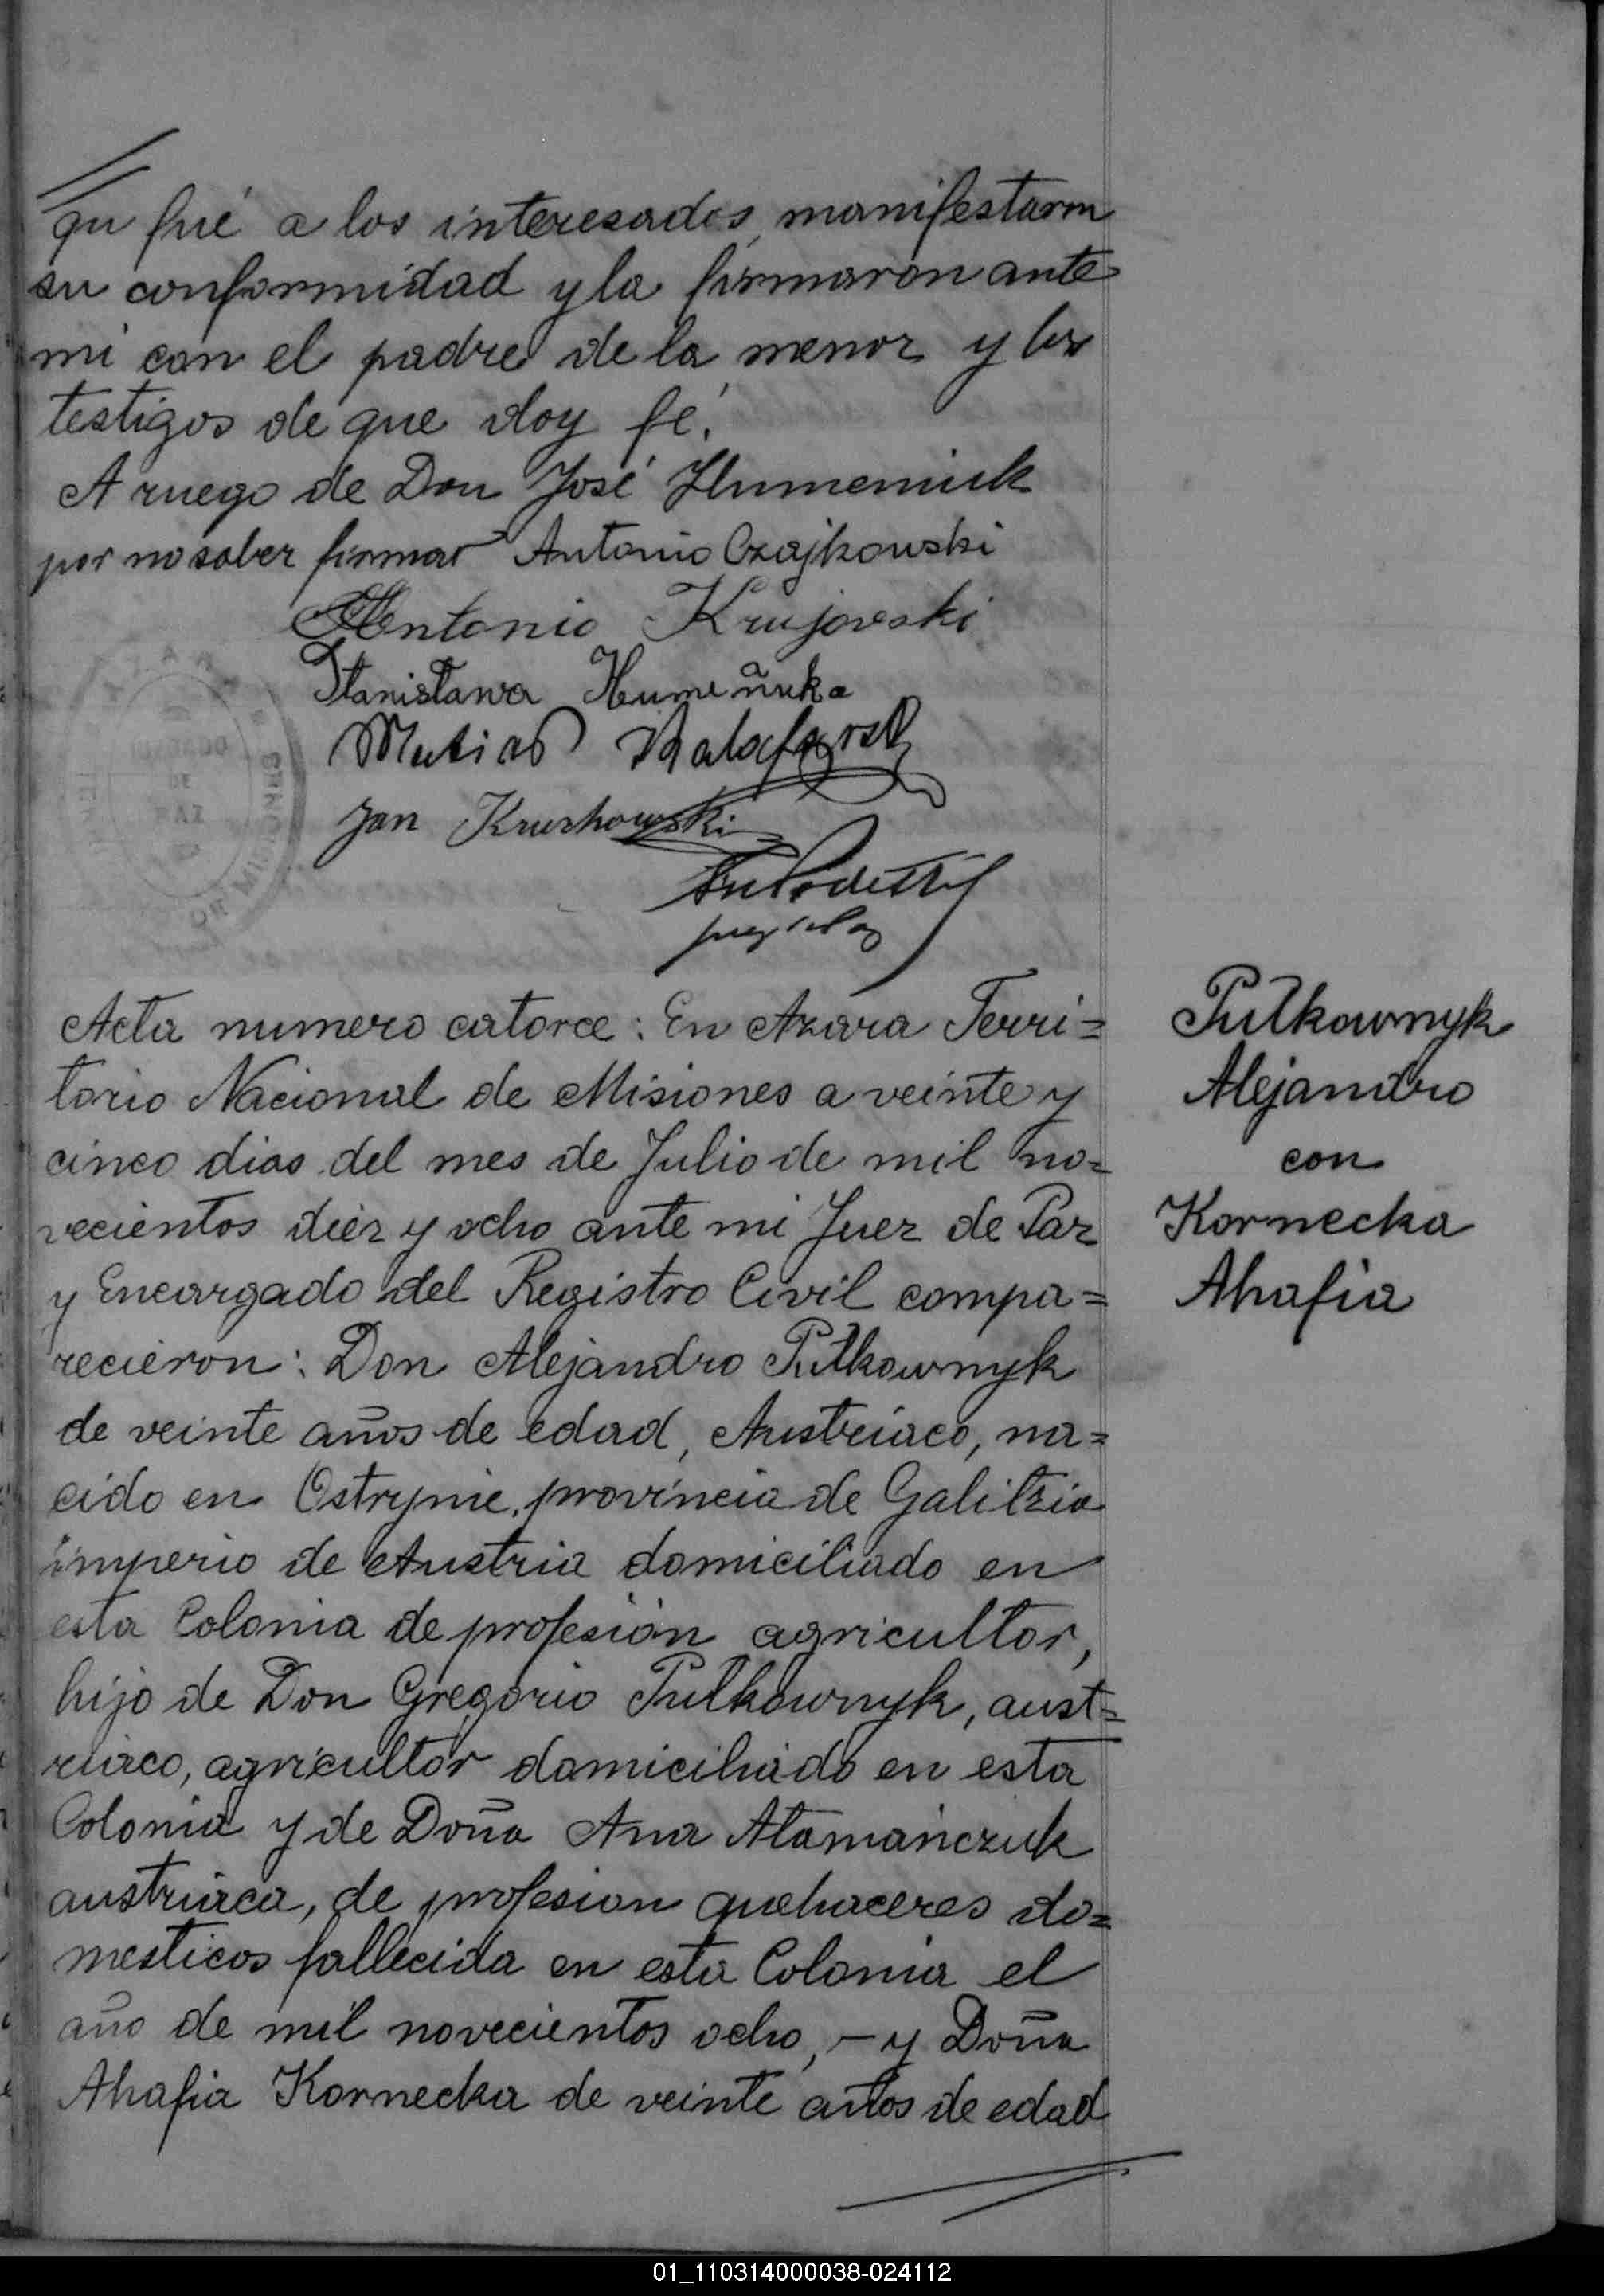 qu fué a los interesados, manifestaron
su conformidad y la firmaron ante
mi con el padre de la menor y los
testigos de que doy fé.
A ruego de Don José Humeniuk
por no saber firmar Antonio Czajkowski
Antonio Krujoveski
Stanisława Humeñuka
Matias
Jan Kruchowski
juez de Paz
JUZGADO
DE
PAZ
DE MISIONES
Acta numero catorce: En Azara Terri=
torio Nacional de Misiones a veinte y
cinco dias del mes de Julio de mil no=
vecientos diéz y ocho ante mi Juez de Paz
y Encargado del Registro Civil compa=
recieron: Don Alejandro Pułkownyk
de veinte años de edad, Austriaco, na=
cido en Ostrynie, provincia de Galitzia
imperio de Austria domiciliado en
esta Colonia de profesión agricultor,
hijo de Don Gregorio Pułkownyk, aust=
riaco, agricultor domiciliado en esta
Colonia y de Doña Ana Atamańczuk
austriaca, de profesion quehaceres do=
mesticos fallecida en esta Colonia el
año de mil novecientos ocho, – y Doña
Ahafia Kornecka de veinte años de edad
Pułkownyk
Alejandro
con
Kornecka
Ahafia
01_110314000038-024112